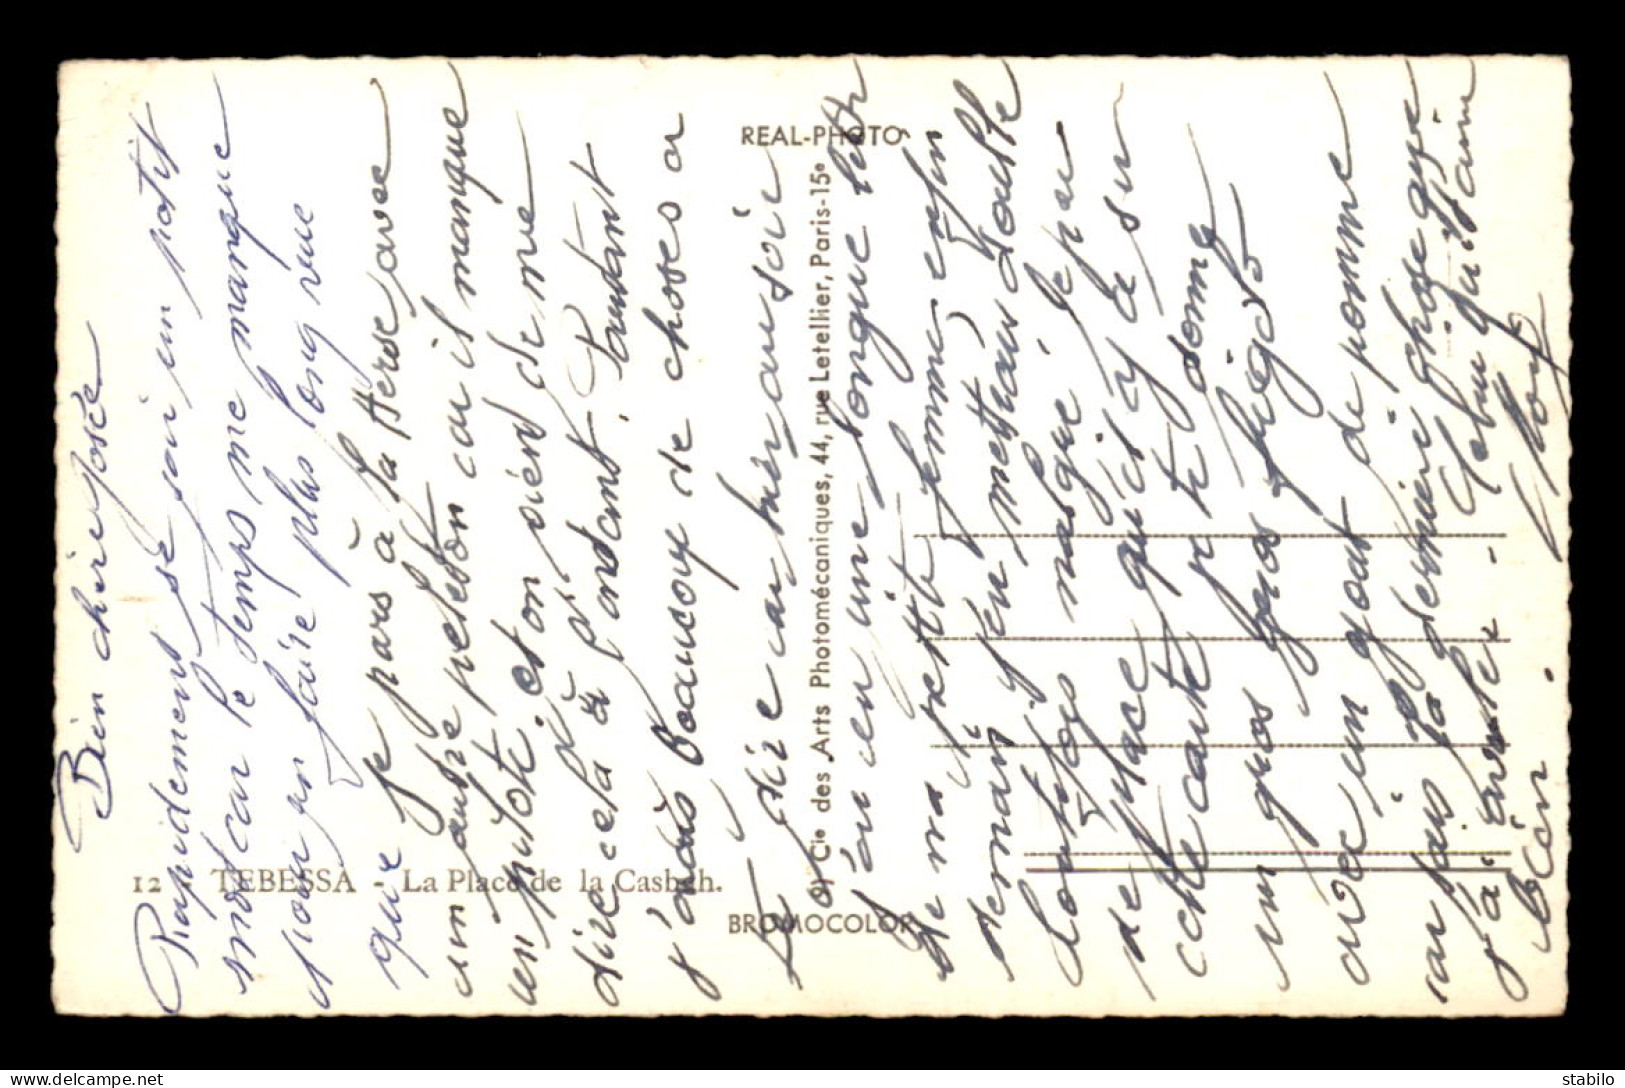 Bien chère Josée
Rapidement se soir un petit
mot car le temps me manque
pour en faire plus long vue
que je pars à la Herse avec
un autre peloton car il manque
un pilote. et on viend de me
dire cela à l'instant. Pourtant
j'avais Beaucoup de choses a
te dire car hier au soir
j'ai eu une longue lettre
de ma petite femme enfin
demain j'en mettrai d'autre
toutefois masque le peu
de place qu'il y a sur
cette carte je te donne
un gros gros
avec un gout de pomme
car fais la dernière chose que
j'ai - Celui qui t'aime
bien.
12 - TEBESSA - La Place de la Casbah.
BROMOCOLOR
REAL-PHOTO
Cie des Arts Photomécaniques, 44, rue Letellier, Paris-15e
stabilo